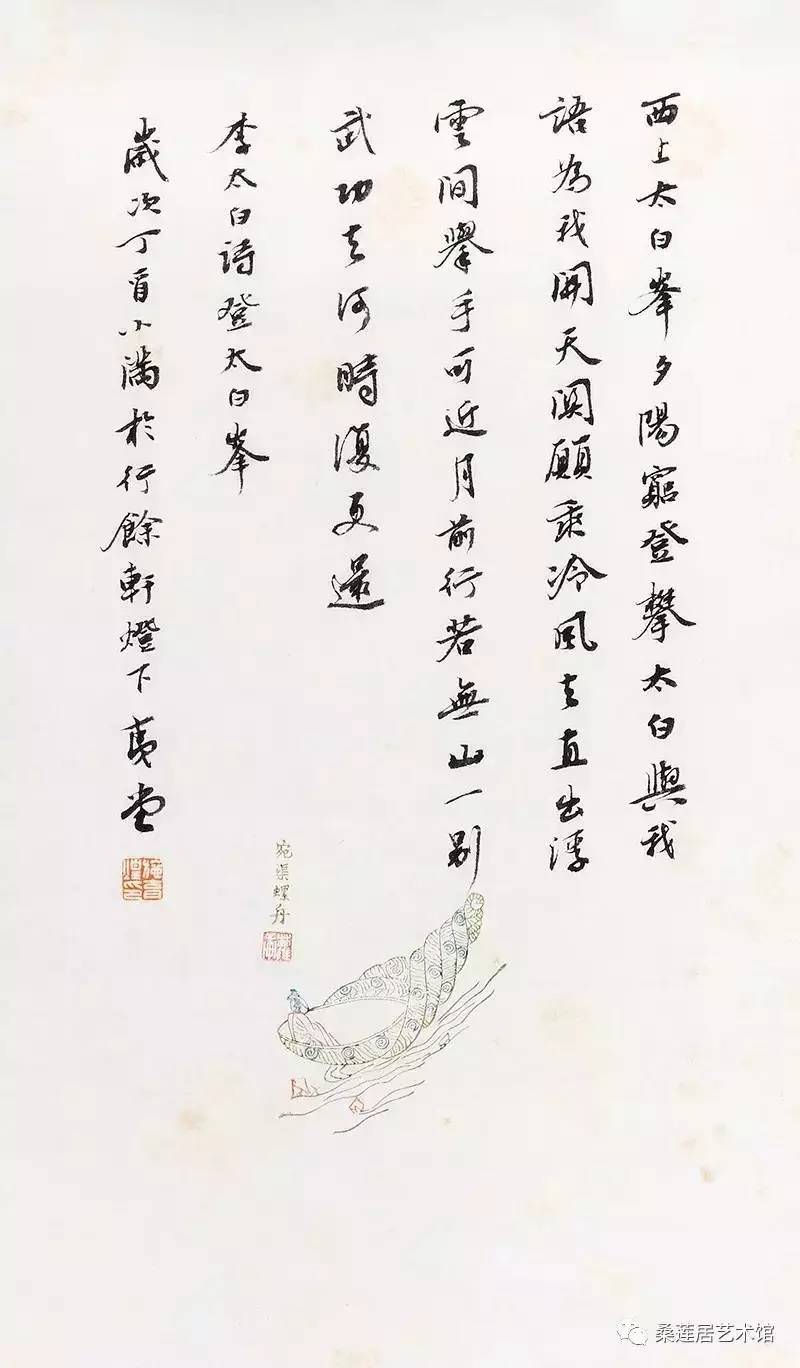 西上太白峯夕陽窮登攀太白與我
語為我開天関願乘冷風去直出浮
雲間擧手可近月前行若無山一别
武功去何時復更還
李太白詩登太白峯
歲次丁酉小滿於行餘軒燈下夷堂
宛渠螺舟
桑莲居艺术馆